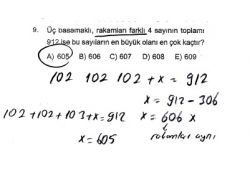 9. Üç basamaklı, rakamları farklı 4 sayının toplamı
912 ise bu sayıların en büyük olanı en çok kaçtır?
A) 605 B) 606 C) 607 D) 608 E) 609
102 102 102 + x = 912
x = 912 - 306
102 + 102 + 103 + x = 912 x = 606 x
x = 605 rakamlar aynı